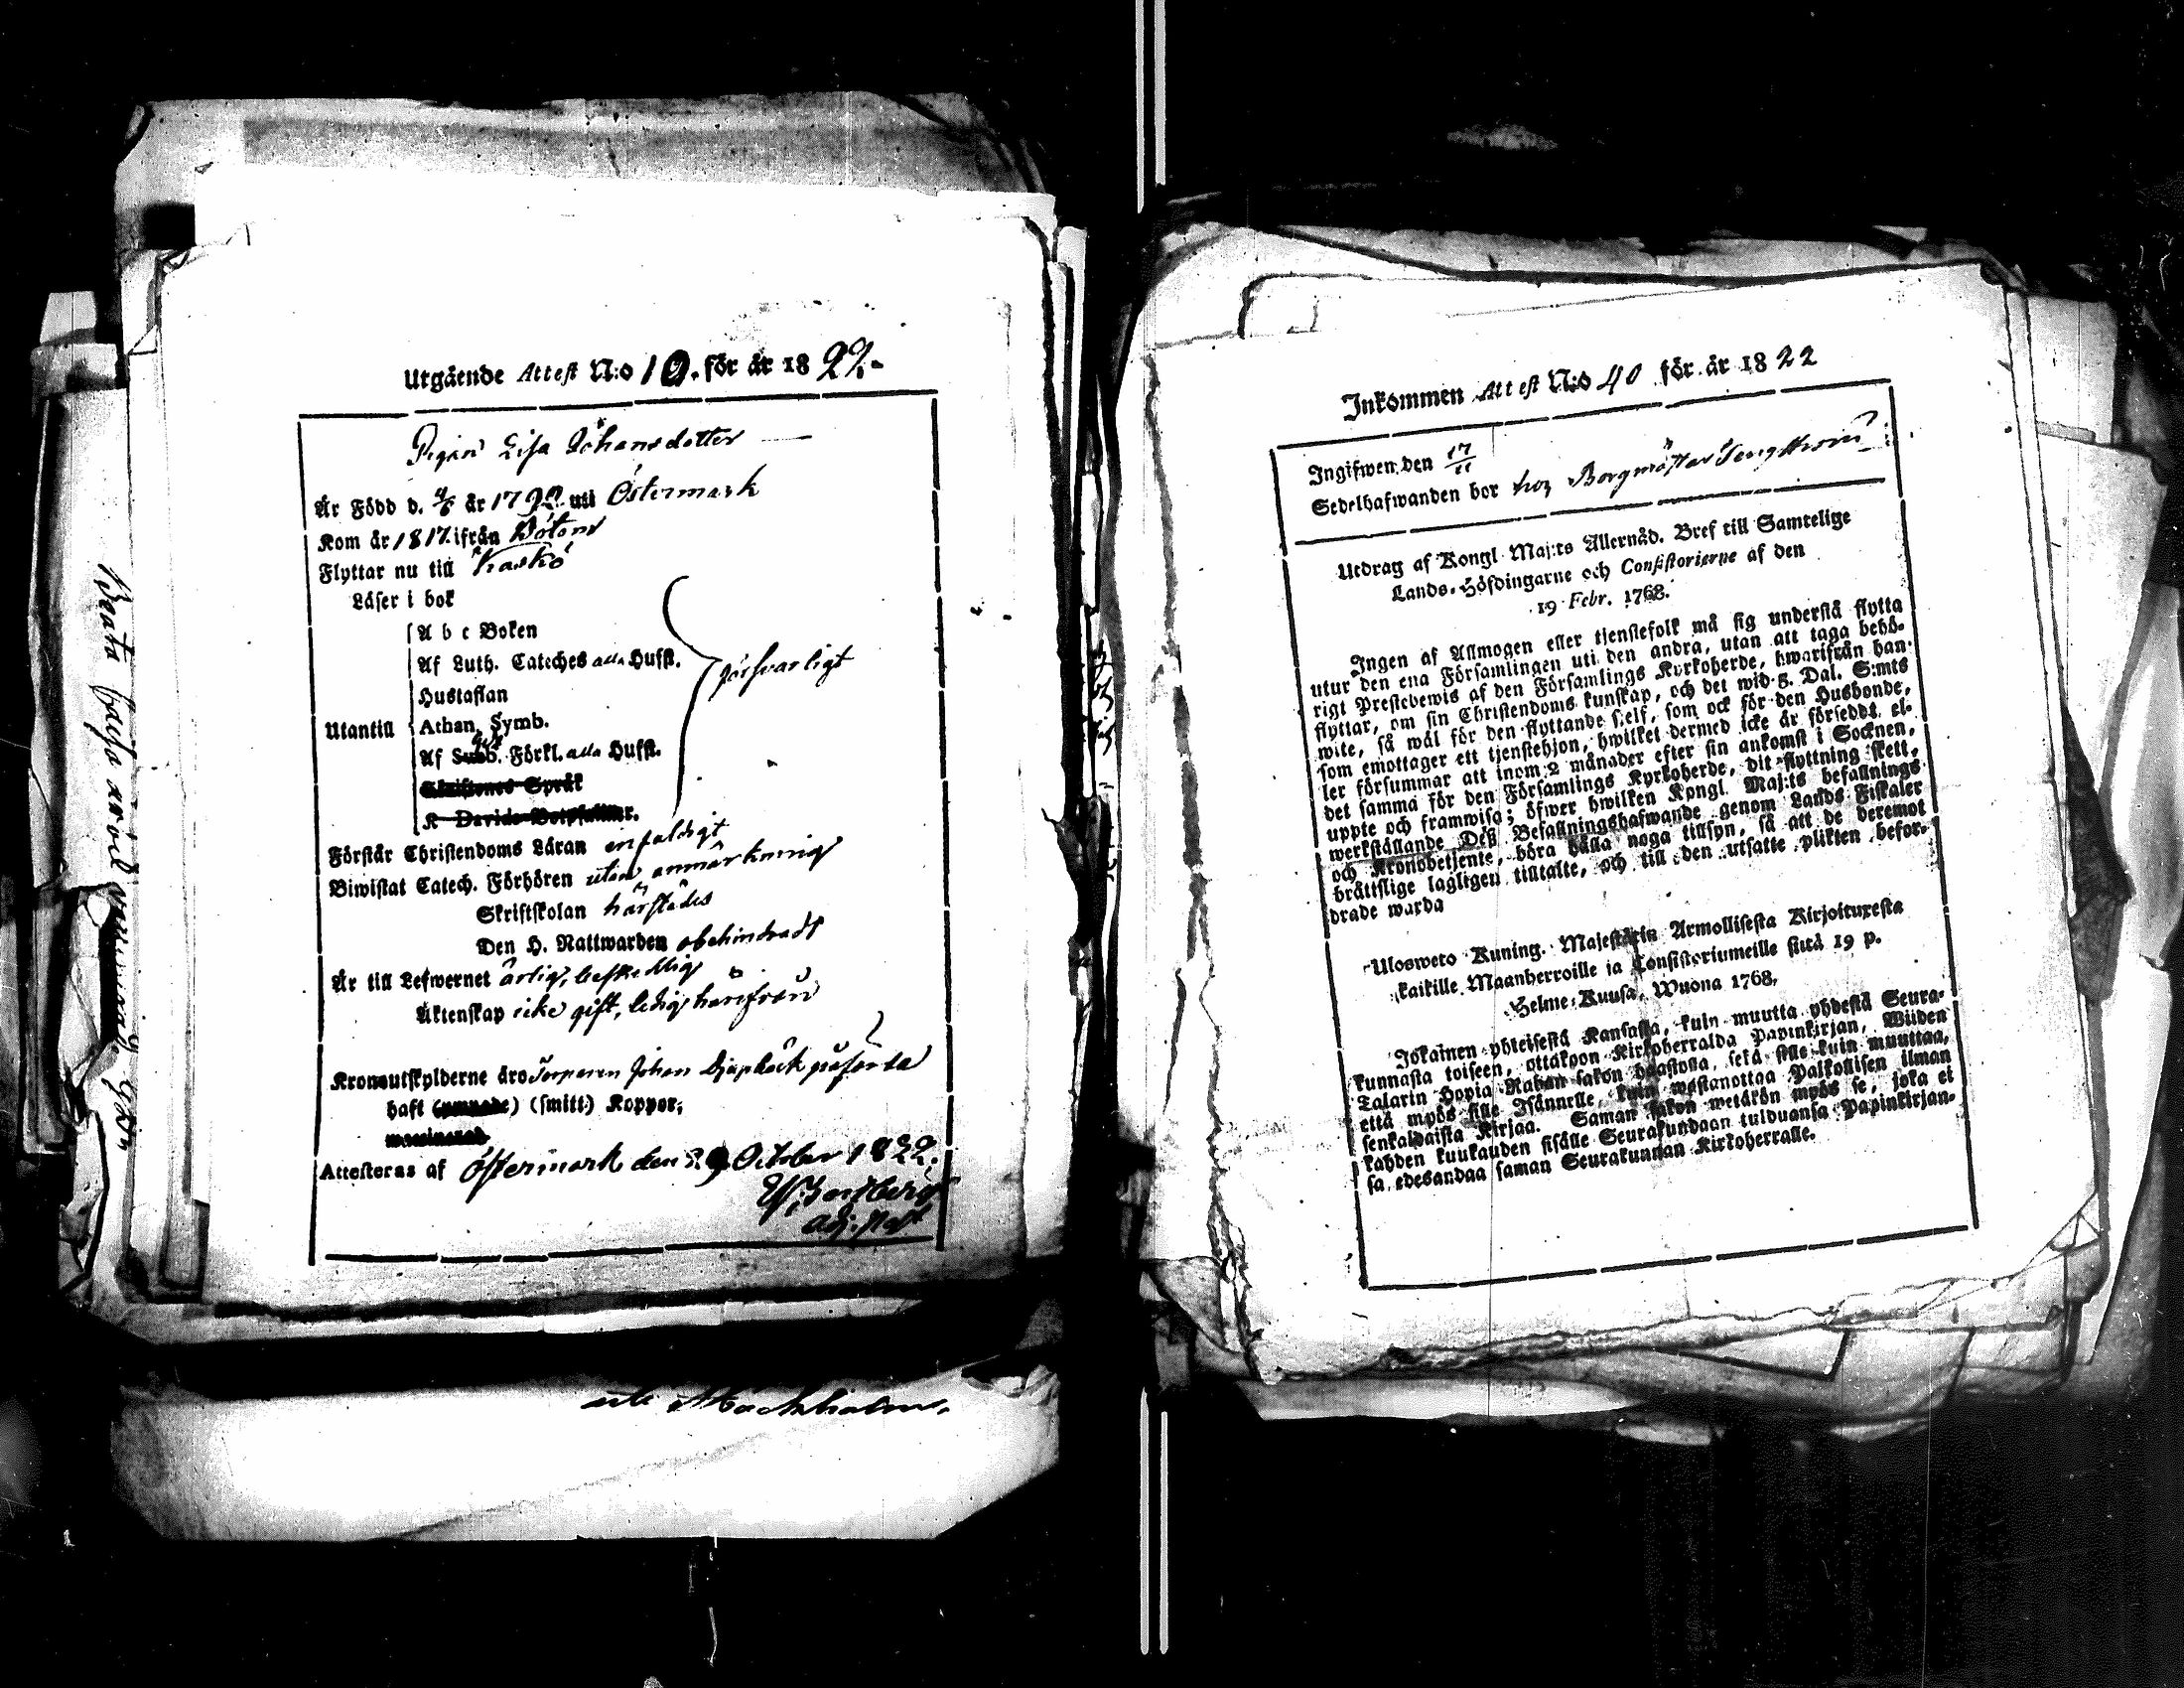 Utgående Attest N:o 10. för år 1822.
Pigan Lisa Johansdotter
Är Född d. år 1792 uti Östermark
Kom år 1817 ifrån Bötom
Flyttar nu till Kaskö
Läser i bok
A b c Boken
Af Luth. Cateches alla Hufst. försvarligt
Hustaflan
Utantill
Athan. Symb.
Af Förkl. alla Hufst.
Skriftenes Språk
K Davids Botpsalmer.
Förstår Christendoms Läran enfaldigt
Biwistat Catech. Förhören utan anmärkning
Skriftskolan härstädes
Den H. Nattwarden obehindradt
Är till Lefwernet ärlig, beskedlig
Äktenskap icke gift, ledig härifrån
Kronoutskylderne äro Torparen Johan påförda
haft (ympade) (smitt.) Koppor,
Attesteras af Östermark den 29 October 1822.
adj. Past
uti Stockholm.
Beata
Inkommen Attest N:o 40 för år 1822
Ingifwen den 17/11
Sedelhafwanden bor hos Borgmästar Tengström
Utdrag af Kongl Maj:ts Allernåd. Bref till Samtelige
Lands-Höfdingarne och Consistorierne af den
19 Febr. 1768.
Ingen af Allmogen eller tjenstefolk må sig understå flytta
utur den ena Församlingen uti den andra, utan att taga behö-
rigt Prestebewis af den Församlings Kyrkoherde, hwarifrån han
flyttar, om sin Christendoms kunskap, och det wid 5. Dal. S:mts
wite, så wäl för den flyttande sjelf, som ock för den Husbonde,
som emottager ett tjenstehjon, hwilket dermed icke är försedt, el-
ler försummar att inom 2 månader efter sin ankomst i Socknen,
det samma för den Församlings Kyrkoherde, dit flyttning skett,
uppte och framwisa; öfwer hwilken Kongl. Maj:ts befallnings
werkställande Deß Befallningshafwande genom Lands Fiskaler
och Kronobetjente, böra hålla noga tillsyn, så att de deremot
brättslige lagligen tilltalte, och till den utsatte plikten befor-
drade warda
Ulosweto Kuning. Majestätin Armollisesta Kirjoituxesta
kaikille Maanherroille ja Consistoriumeille siitä 19 p.
Helme-Kuusa, Wuona 1768.
Jokainen yhteisestä Kansasta, kuin muutta yhdestä Seura-
kunnasta toiseen, ottakoon Kirkoherralda Papinkirjan, Wiiden
Talarin Hopia Rahan sakon haastolla, sekä sille kuin muuttaa,
että myös sille Isännelle, kuin wastanottaa Palkollisen ilman
senkaldaista Kirjaa. Saman sakon wetäkön myös se, joka ei
kahden kuukauden sisälle Seurakundaan tulduansa Papinkirjan-
sa edesandaa saman Seurakunnan Kirkoherralle.